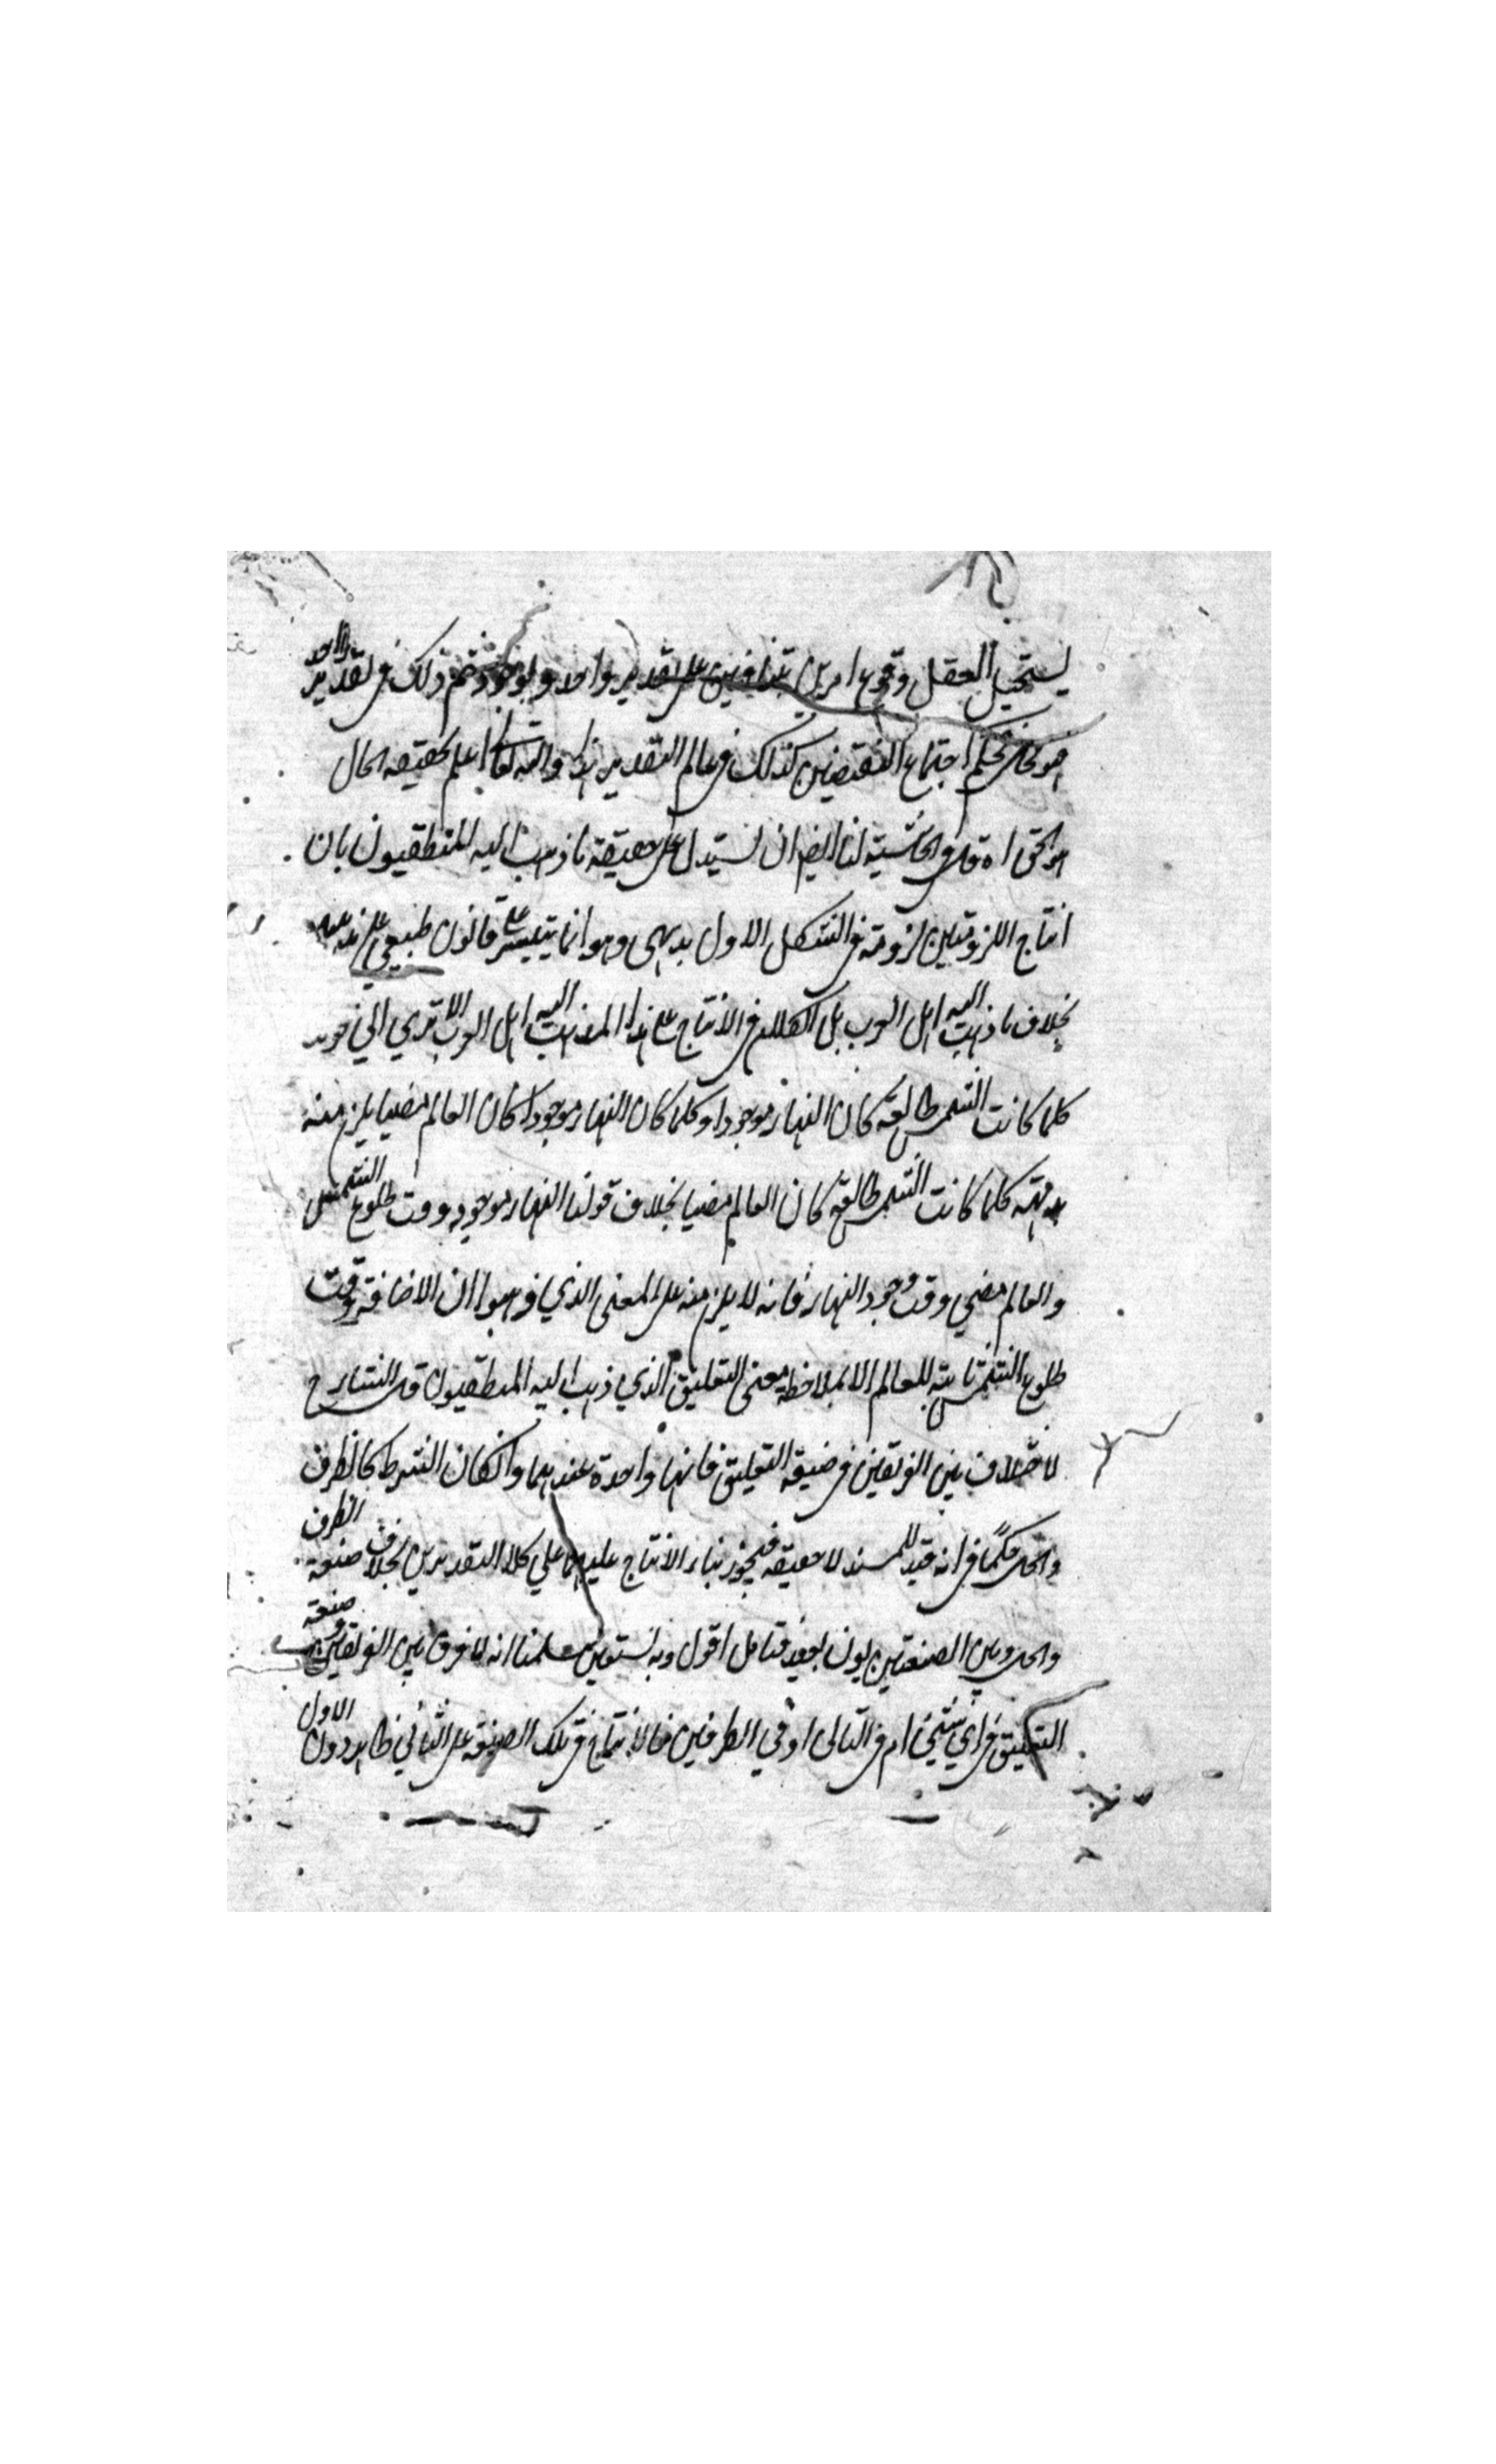 يستحيل العقل وقوع امرين متنافيين على تقدير واحد ولو جوزتم ذلك في تقدير واحد
هو محال فحكم اجتماع النقيضين كذلك في عالم التقدير هذا والله تعالى اعلم بحقيقة الحال
هو الحق اه قال في الحاشية لنا ايضا ان نستدل على حقيقة ما ذهب اليه المنطقيون بان
انتاج اللزوميتين لزومية في الشكل الاول بديهي وهو انما يتيسر على قانون طبيعي على
بخلاف ما ذهب اليه اهل العرب بل الكلام في الانتاج على هذا المذهب اليه اهل العرب الا ترى الى قوله
كلما كانت الشمس طالعة كان النهار موجودا وكلما كان النهار موجودا كان العالم مضيا يلزم منه
بديهة كلما كانت الشمس طالعة كان العالم مضيا بخلاف قولنا النهار موجود وقت طلوع الشمس
والعالم مضي وقت وجود النهار فانه لا يلزم منه على المعنى الذي ذهبوا ان الاضافة وقت
طلوع الشمس ثابتة للعالم الا بملاحظة معنى التعليق الذي ذهب اليه المنطقيون قال الشارح
لا خلاف بين الفريقين في صيغة التعليق فانها واحدة عندهما وان كان الشرط كالظرف
والحال حكما في انه قيد للمسند لا حقيقة فيجوز بناء الانتاج عليهما على كلا التقديرين بخلاف صيغة الظرف
والحال وبين الصيغتين بون بعيد فتامل اقول وبه نستعين سلمنا انه لا فرق بين الفريقين في صيغة
التعليق في اي شيئ ام في التالي او في الطرفين فالانتاج في تلك الصيغة على الثاني ظاهر دون الاول